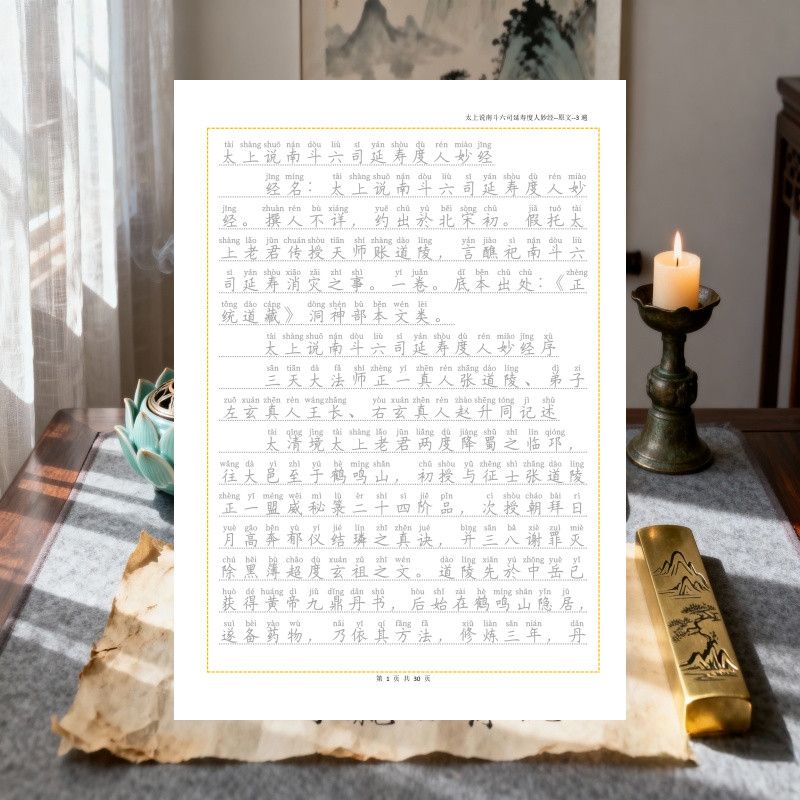 太上说南斗六司延寿度人妙经--原文--3 遍
tài shàng shuō nán dòu liù sī yán shòu dù rén miào jīng
太上说南斗六司延寿度人妙经
jīng míng tài shàng shuō nán dòu liù sī yán shòu dù rén miào
经名：太上说南斗六司延寿度人妙
jīng zhuàn rén bù xiáng yuē chū yú běi sòng chū jiǎ tuō tài
经。撰人不详，约出於北宋初。假托太
shàng lǎo jūn chuán shòu tiān shī zhàng dào líng yán jiào sì nán dòu liù
上老君传授天师账道陵，言醮祀南斗六
sī yán shòu xiāo zāi zhī shì yī juàn dǐ běn chū chù zhèng
司延寿消灾之事。一卷。底本出处：《正
tǒng dào cáng dòng shén bù běn wén lèi
统道藏》洞神部本文类。
tài shàng shuō nán dòu liù sī yán shòu dù rén miào jīng xù
太上说南斗六司延寿度人妙经序
sān tiān dà fǎ shī zhèng yī zhēn rén zhāng dào líng dì zǐ
三天大法师正一真人张道陵、弟子
zuǒ xuán zhēn rén wáng zhǎng yòu xuán zhēn rén zhào shēng tóng jì shù
左玄真人王长、右玄真人赵升同记述
tài qīng jìng tài shàng lǎo jūn liǎng dù jiàng shǔ zhī lín qióng
太清境太上老君两度降蜀之临邛，
wǎng dà yì zhì yú hè míng shān chū shòu yǔ zhēng shì zhāng dào líng
往大邑至于鹤鸣山，初授与征士张道陵
zhèng yī méng wēi mì lù èr shí sì jiē pǐn cì shòu cháo bài rì
正一盟威秘箓二十四阶品，次授朝拜日
yuè gāo bēn yù yí jié lín zhī zhēn jué bìng sān bā xiè zuì miè
月高奔郁仪结璘之真诀，并三八谢罪灭
chú hēi bù chāo dù xuán zǔ zhī wén dào líng xiān yú zhōng yuè yǐ
除黑薄超度玄祖之文。道陵先於中岳已
huò dé huáng dì jiǔ dǐng dān shū hòu shǐ zài hè míng shān yǐn jū
获得黄帝九鼎丹书，后始在鹤鸣山隐居，
suì bèi yào wù nǎi yī qí fāng fǎ xiū liàn sān nián dān
遂备药物，乃依其方法，修炼三年，丹
第 1 页 共 30 页